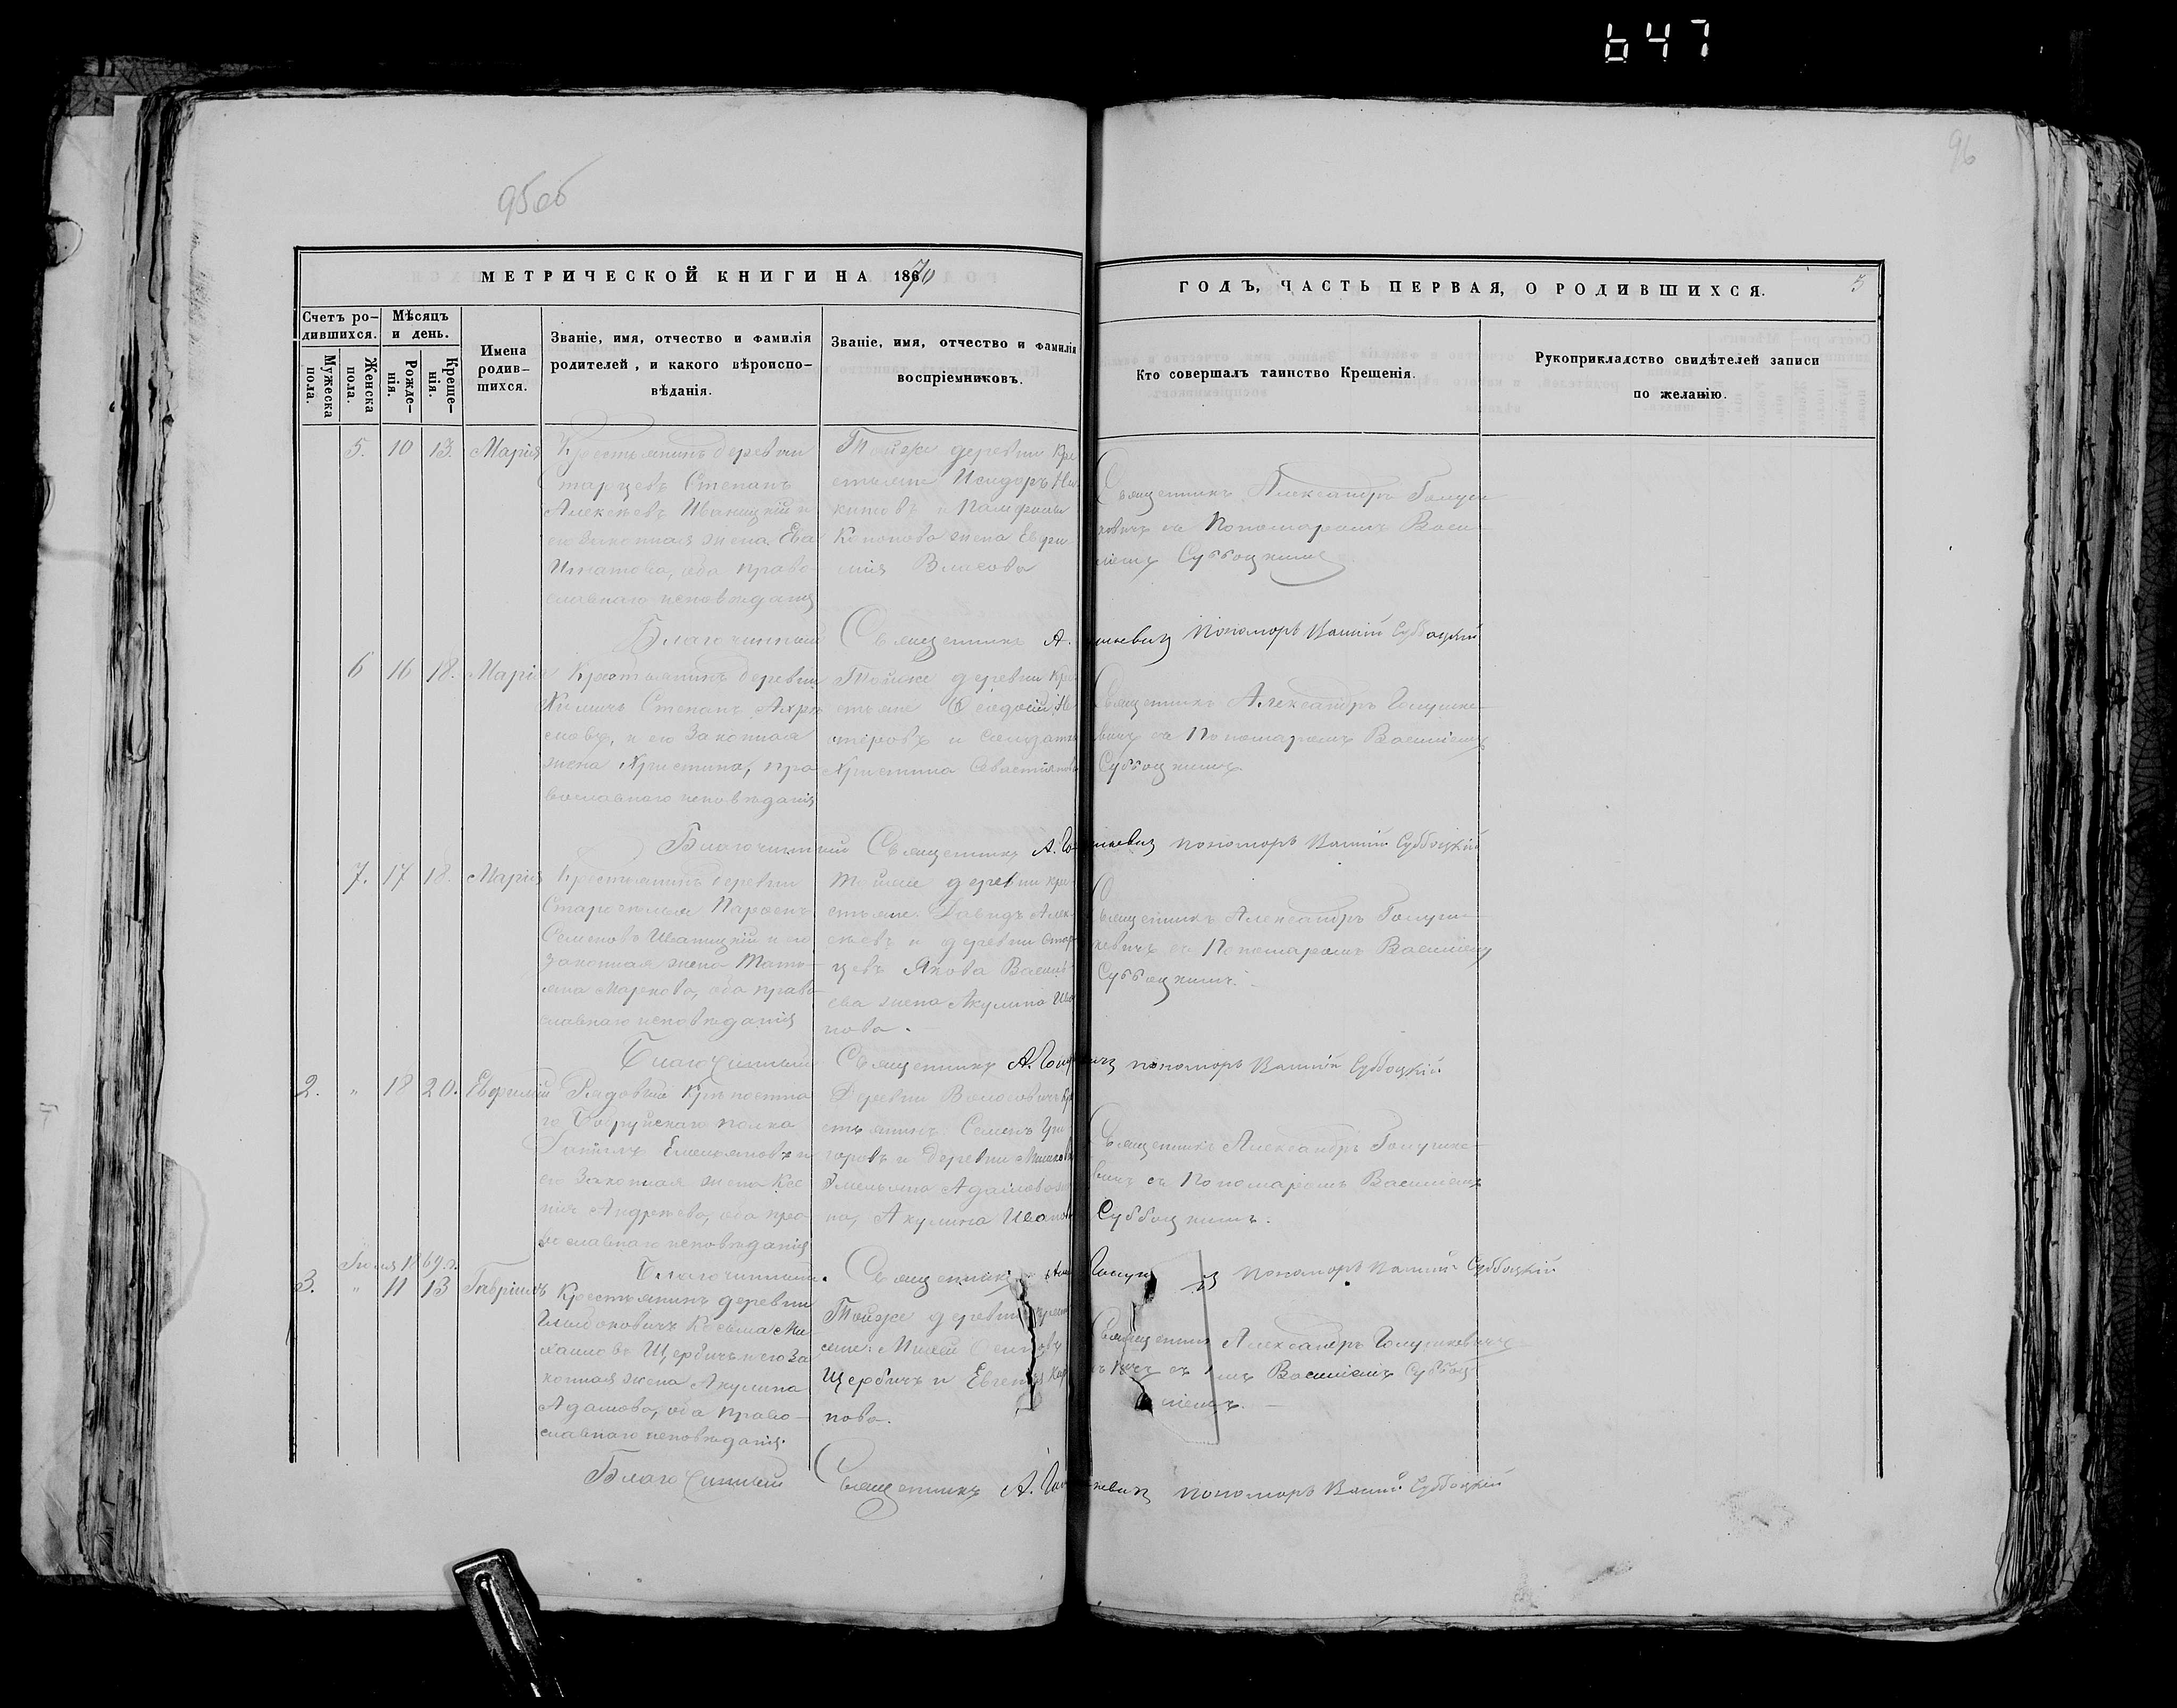 647
96
95об
МЕТРИЧЕСКОЙ КНИГИ НА 1870
ГОДЪ, ЧАСТЬ ПЕРВАЯ, О РОДИВШИХСЯ.
5
Счетъ ро-
дившихся.
Мѣсяцъ
и день.
Мужеска
пола.
Женска
пола.
Рожде-
нія.
Креще-
нія.
Имена
родив-
шихся.
Званіе, имя, отчество и фамилія
родителей, и какого вѣроиспо-
вѣданія.
Званіе, имя, отчество и фамилія
воспріемниковъ.
Кто совершалъ таинство Крещенія.
Рукоприкладство свидѣтелей записи
по желанію.
5. 10 13. Марія
Крестьянинъ деревни
Старцевъ Степанъ
Алексѣевъ Иваницкій и
его законная жена Ева
Игнатова, оба право-
славнаго исповѣданія
Тойже деревни Кре
стьяне Исидоръ Ни
китовъ и Памфила
Кононова жена Евфи
мія Власова
Священникъ Александръ Голуш
кевичъ съ Пономаремъ Васи-
ліемъ Суббоцкимъ
Благочинный Священникъ А. шкевичъ пономарь Василій Суббоцкій
6 16 18. Марія
Крестьянинъ деревни
Степанъ
и его Законная
жена Христина, пра
вославнаго исповѣданія
Тойже деревни Кре
стьяне
и
Христина Севастіянова
Священникъ Александръ Голушке-
вичъ съ Пономаремъ Василіемъ
Суббоцкимъ.
Благочинный Священникъ А. Го шкевичъ пономарь Василій Суббоцкій
7. 17 18. Марія
Крестьянинъ деревни
Староселья Парфенъ
Семеновъ Иваницкій и его
законная жена Тать-
яна Маркова, оба право
славнаго исповѣданія
Тойже деревни кре
стьяне Давидъ Алек-
сѣевъ и деревни Стар
цевъ Якова Василь
ева жена Акулина Ива
нова.
Священникъ Александръ Голуш-
кевичъ съ Пономаремъ Василіемъ
Суббоцкимъ.
Благочинный Священникъ А. Голу ичъ пономарь Василій Суббоцкій
2. " 18 20. Евфимій
Рядовый Крѣпостна
го Бобруйскаго полка
Емельяновъ и
его Законная жена Ксе
нія Андреева, оба пра
вославнаго исповѣданія
Деревни Волосовичъ кре
стьянинъ Семенъ Гри
горовъ и деревни
Емельяна Адамова же
на, Акулина Иванова
Священникъ Александръ Голушке-
вичъ съ Пономаремъ Василіемъ
Суббоцкимъ.
Благочинный. Священникъ Голуш пономарь Василій Суббоцкій
Іюля 1869 г.
3. " 11 13 Гавріилъ
Крестьянинъ деревни
Козьма Ми
хаиловъ Щербичъ и его За
конная жена Акулина
Адамова, оба право-
славнаго исповѣданія.
Тойже деревни крест
яне
Щербичъ и Евгенія Кар
пова.
Священникъ Александръ Голушкевичъ
съ Василіемъ Суббоц
кимъ.
Благочинный Священникъ А. Голу шкевичъ пономарь Василій Суббоцкій